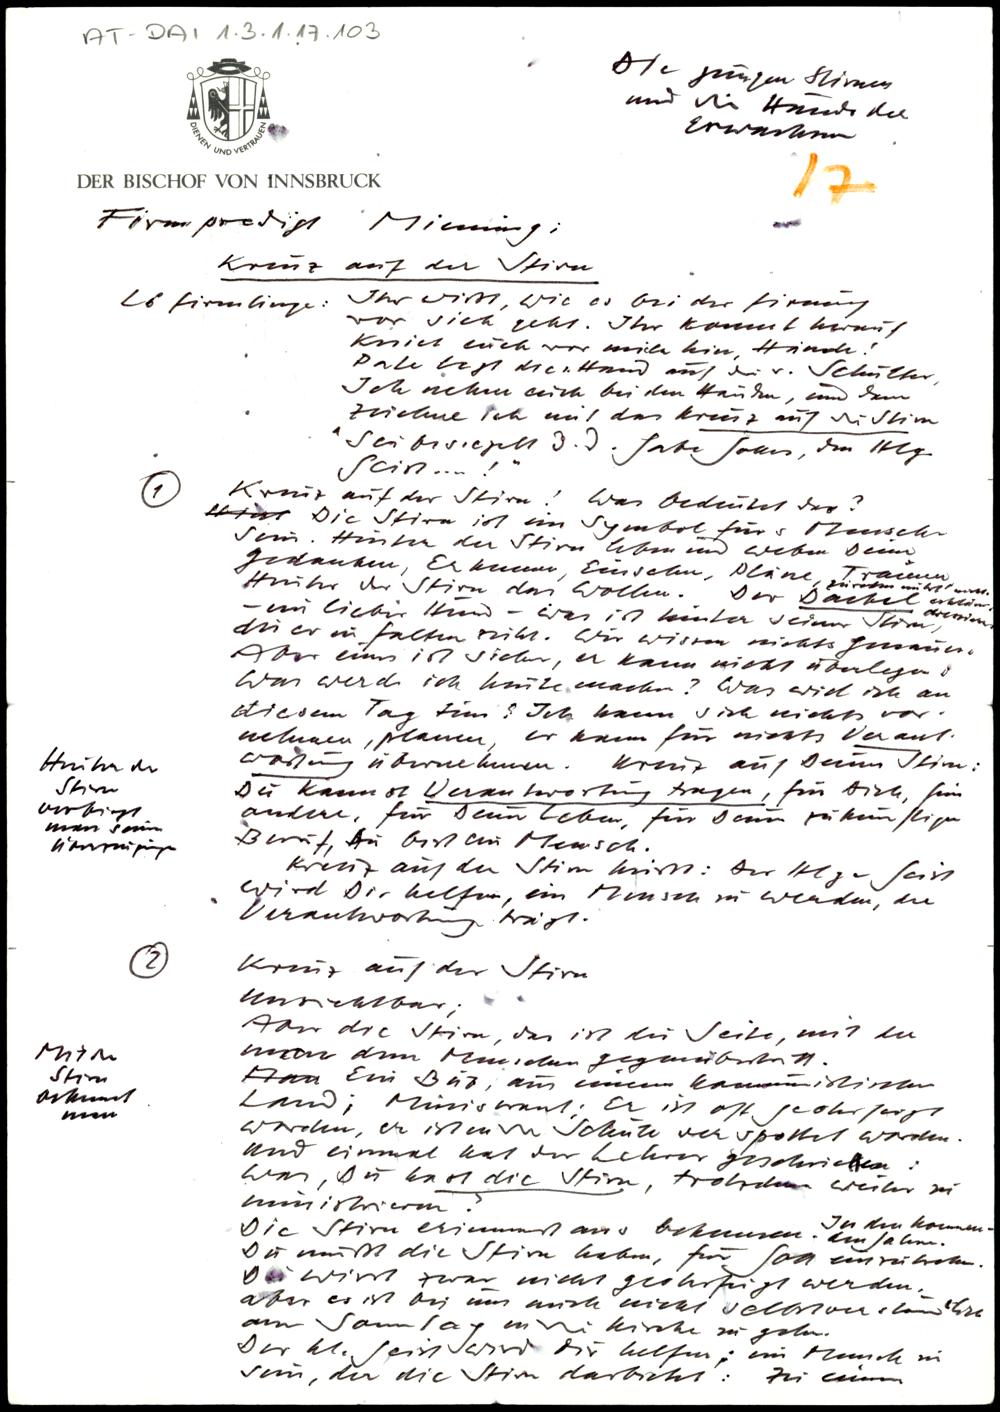 AT-DAI 1.3.1.17.103
Die jungen Stirnen
und die Hände der
Erwachsenen
17
DIENEN UND VERTRAUEN
DER BISCHOF VON INNSBRUCK
Firmpredigt Mieming:
Kreuz auf der Stirn
Lb Firmlinge: Ihr wißt, wie es bei der Firmung
vor sich geht. Ihr kommt herauf
kniet euch vor mich hin, Hände!
Pate legt die Hand auf die r. Schulter,
Ich nehme euch bei den Händen, und dann
zeichne ich mit das Kreuz auf die Stirn
"Sei besiegelt d. d. Gabe Gottes, den Hlg
Geist....!"
1
Kreuz auf der Stirn! Was bedeutet das?
Die Stirn ist ein Symbol fürs Mensch-
Sein. Hinter der Stirn leben und weben Deine
Gedanken, Erkennen, Einsehen, Pläne, Träume
Hinter der Stirn das Wollen. Der Dackel
- ein lieber Hund - was ist hinter seiner Stirn,
die er in Falten zieht. Wir wissen nichts Genaues.
Aber eines ist sicher, er kann nicht überlegen:
Was werde ich heute machen? Was will ich an
diesem Tag tun? Ich kann sich nichts vor-
nehmen, planen, er kann für nichts Verant-
wortung übernehmen. Kreuz auf Deine Stirn:
Du kannst Verantwortung tragen, für Dich, für
andere, für Dein Leben, für Deinen zukünftigen
Beruf, Du bist ein Mensch.
Hinter der
Stirn
verbirgt
man seine
Überzeugung
Kreuz auf der Stirn heißt: Der Hlge Geist
wird Dir helfen, ein Mensch zu werden, der
Verantwortung trägt.
2
Kreuz auf der Stirn
Unsichtbar;
Aber die Stirn, das ist die Seite, mit der
man dem Menschen gegenübertritt.
Mit der
Stirn
bekennt
man
Ein Bub, aus einem kommunistischen
Land; Ministrant; Er ist oft geohrfeigt
worden, er ist in der Schule verspottet worden.
Und einmal hat der Lehrer geschrieen:
Was, Du hast die Stirn, trotzdem weiter zu
ministrieren?
Die Stirn erinnert ans Bekennen. In den kommen-
den Jahren.
Du mußt die Stirn haben, für Gott einzutreten.
Du wirst zwar nicht geohrfeigt werden,
aber es ist bei uns auch nicht selbstverständlich
am Sonntag in die Kirche zu gehn.
Der hl. Geist wird Dir helfen, ein Mensch zu
sein, der die Stirn darbietet: Zu einem